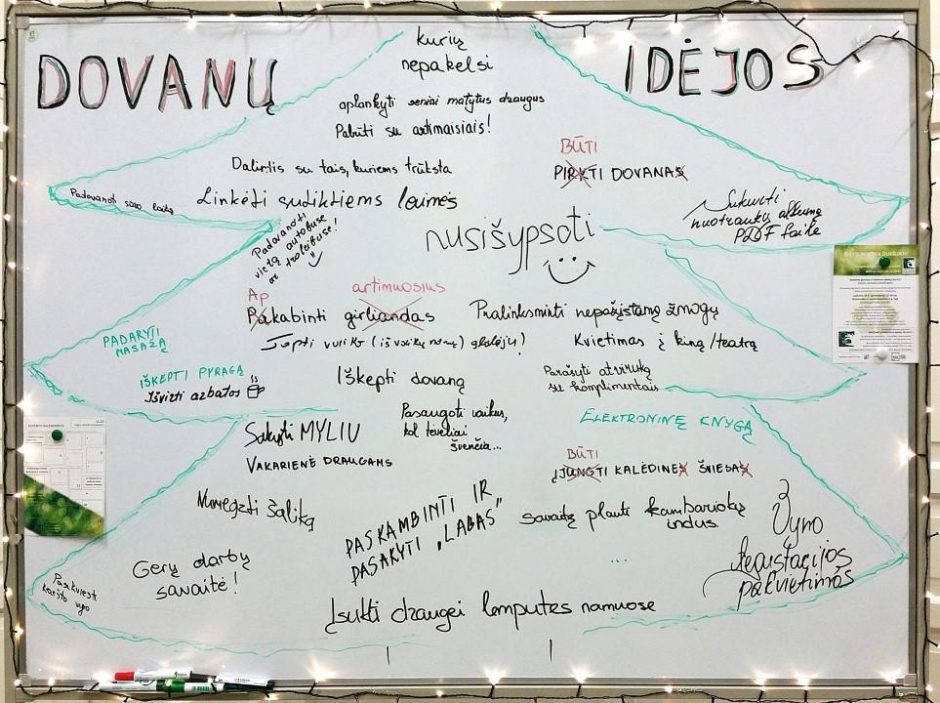 DOVANŲ IDĖJOS
kurių
nepakelsi
aplankyti seniai matytus draugus
Pabūti su artimaisiais!
Dalintis su tais, kuriems trūksta
BŪTI
PIRKTI DOVANAS
Padovanoti savo laiką
Linkėti sutiktiems laimės
Sukurti
nuotraukų albumą
PDF faile
Padovanoti
vietą autobuse
ar troleibuse!
nusišypsoti
Ap
artimuosius
Pakabinti girliandas
Pralinksminti nepažįstamą žmogų
PADARYTI
MASAŽĄ
Tapti vaiko (iš vaikų namų) globėju!
Kvietimas į kiną/teatrą
IŠKEPTI PYRAGĄ
Išvirti arbatos
Iškepti dovaną
Parašyti atviruką
su komplimentais
Pasaugoti vaikus,
kol tėveliai
švenčia...
ELEKTRONINĘ KNYGĄ
Sakyti MYLIU
VAKARIENĖ DRAUGAMS
BŪTI
ĮJUNGTI KALĖDINES ŠVIESAS
Numegzti šaliką
PASKAMBINTI IR
PASAKYTI „LABAS"
savaitę plauti kambariokų
indus
Į
Vyno
degustacijos
pakvietimas
...
Gerų darbų
savaitė!
Pasikviesti
karšto vyno
Įsukti draugei lemputes namuose